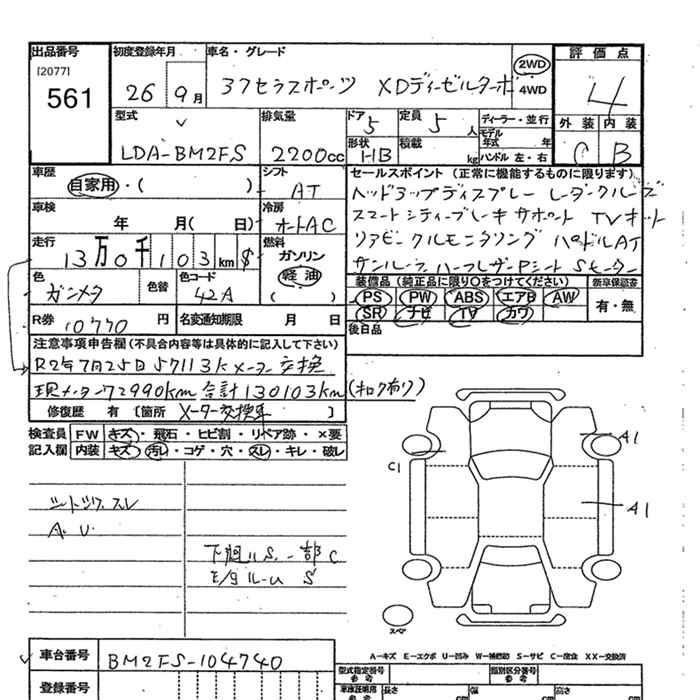 出品番号
[2077]
561
初度登録年月
26 9月
車名・グレード
37セラスポーツ XDディーゼルターボ
2WD
4WD
評価点
4
外装 内装
C B
型式
LDA-BM2FS
排気量
2200cc
ドア 5
定員 5 人
形状 HB
積載 kg
ディーラー・並行
モデル
年式 年
ハンドル 左・右
車歴
自家用・( )
シフト
AT
車検
年 月( 日)
冷房
オートAC
走行
13万0千103km $
燃料
ガソリン
軽油
( )
色
ガンメタ
色替
色コード
42A
R券 10770円
名変通知期限 月 日
セールスポイント (正常に機能するものに限ります)
ヘッドアップディスプレー レーダークルーズ
スマートシティーブレーキサポート TVキット
リアビークルモニタリング パドルAT
サンルーフ ハーフレザーPシート Sモーター
装備品 (純正品に限り○をつけてください)
PS PW ABS エアB AW
SR ナビ TV カワ
新車保証書
有・無
後日品
注意事項申告欄(不具合内容等は具体的に記入して下さい)
R2年7月25日 57113K メーター交換
現メーター72990km 合計130103km (キロク有り)
修復歴 有 [箇所 メーター交換車 ]
検査員 FW キズ・飛石・ヒビ割・リペア跡・×要
記入欄 内装 キズ・汚レ・コゲ・穴・スレ・キレ・破レ
A.U.
下廻りS、一部C
E/gルーム S
A1
C1
A1
スペア
A―キズ E―エクボ U―凹み W―補修跡 S―サビ C―腐食 XX―交換済
車台番号
BM2FS-104740
登録番号
型式指定番号
参考
類別区分番号
参考
車庫証明用
参考
長さ cm
幅 cm
高さ cm